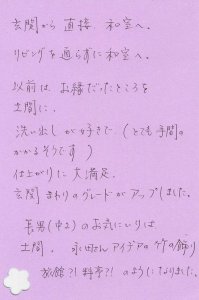 玄関から 直接 和室へ.
リビングを通らずに和室へ.
以前は お縁だったところを
土間に.
洗い出しが好きで（とても手間の
かかるそうです）
仕上がりに 大満足.
玄関まわりのグレードがアップしました.
長男(中2)のお気にいりは
土間. 永田さんアイデアの 竹の飾り
旅館?! 料亭?! のようになりました.